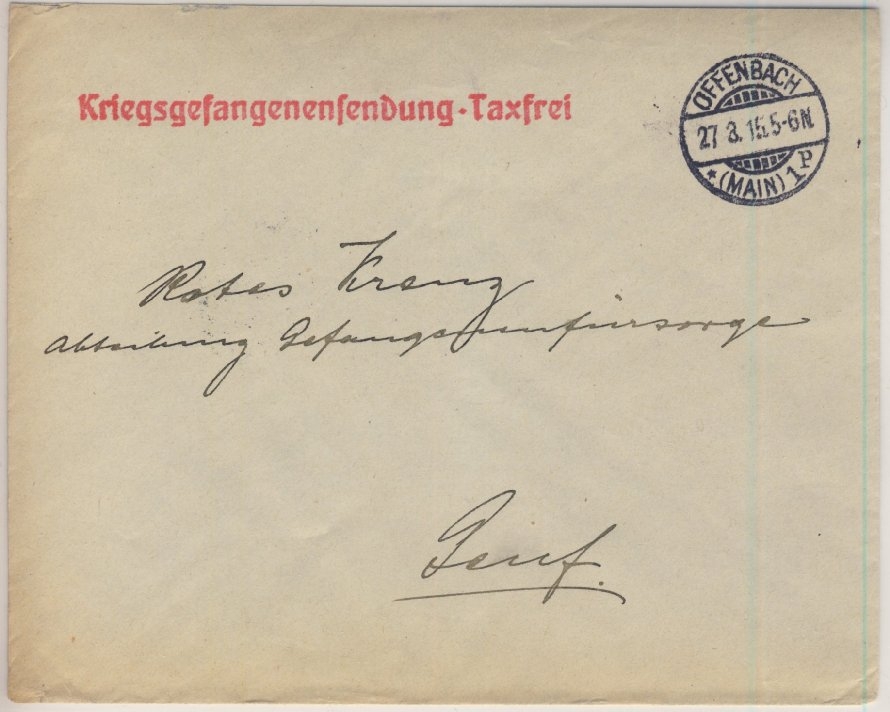 Kriegsgefangenensendung·Taxfrei
OFFENBACH
27 8. 15.5-6N.
* (MAIN) 1P
Rotes Kreuz
Abteilung Gefangenenfürsorge
Genf.